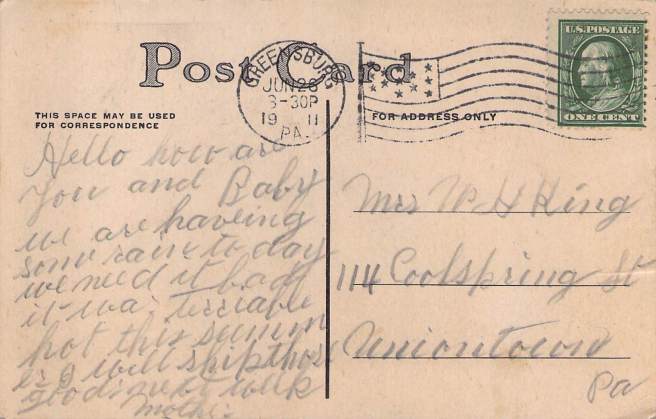 Post Card
GREENSBURG
JUN 26
3-30P
19 11
PA.
U.S. POSTAGE
ONE CENT
THIS SPACE MAY BE USED
FOR CORRESPONDENCE
FOR ADDRESS ONLY
Hello how are
you and Baby
we are haveing
som rain to day
we need it bad
it was terriable
hot this summ
er I will ship those
goods next week
Mother
Mrs W H King
114 Coolspring St
Uniontown
Pa